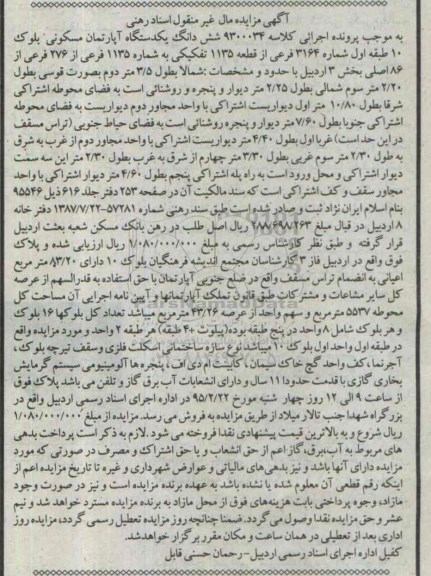 آگهی مزایده مال غیر منقول اسناد رهنی
به موجب پرونده اجرائی کلاسه ۹۳۰۰۰۳۴ شش دانگ یکدستگاه آپارتمان مسکونی بلوک
۱۰ طبقه اول شماره ۳۱۶۴ فرعی از قطعه ۱۱۳۵ تفکیکی به شماره ۱۱۳۵ فرعی از ۲۷۶ فرعی از
۸۶ اصلی بخش ۳ اردبیل با حدود و مشخصات :شمالا بطول ۳/۵ متر دوم بصورت قوسی بطول
۲/۲۰ متر سوم شمالی بطول ۲/۲۵ متر دیوار و پنجره و روشنائی است به فضای محوطه اشتراکی
شرقا بطول ۱۰/۸۰ متر اول دیواریست اشتراکی با واحد مجاور دوم دیواریست به فضای محوطه
اشتراکی جنوبا بطول ۷/۶۰ متر دیوار و پنجره روشنائی است به فضای حیاط جنوبی (تراس مسقف
در این حد است) غربا اول بطول ۴/۴۰ متر دیواریست اشتراکی با واحد مجاور دوم از غرب به شرق
به طول ۲/۳۰ متر سوم غربی بطول ۳/۳۰ متر چهارم از شرق به غرب بطول ۲/۳۰ متر این سه سمت
دیوار اشتراکی و محل ورود است به راه پله اشتراکی پنجم بطول ۴/۶۰ متر دیوار اشتراکی با واحد
مجاور سقف و کف اشتراکی است که سند مالکیت آن در صفحه ۲۵۳ دفتر جلد ۶۱۶ ذیل ۹۵۵۴۶
بنام اسلام ایران نژاد ثبت و صادر شده است طبق سند رهنی شماره ۵۷۲۸۱-۱۳۸۷/۷/۲۲ دفتر خانه
۸ اردبیل در قبال مبلغ ۲۸۷/۶۹۸/۲۶۳ ریال اصل طلب در رهن بانک مسکن شعبه بعثت اردبیل
قرار گرفته و طبق نظر کارشناس رسمی به مبلغ ۱/۰۸۰/۰۰۰/۰۰۰ ریال ارزیابی شده و پلاک
فوق واقع در اردبیل فاز ۳ کارشناسان مجتمع اندیشه فرهنگیان بلوک ۱۰ دارای ۸۳/۲۰ متر مربع
اعیانی به انضمام تراس مسقف واقع در ضلع جنوبی آپارتمان با حق استفاده به قدرالسهم از عرصه
کل سایر مشاعات و مشترکات طبق قانون تملک آپارتمانها و آیین نامه اجرایی آن مساحت کل
محوطه ۵۵۳۷ مترمربع و سهم واحد از عرصه ۴۳/۲۶ مترمربع میباشد تعداد کل بلوکها ۱۶ بلوک
و هر بلوک شامل ۸ واحد در پنج طبقه بوده(پیلوت +۴ طبقه) هر طبقه ۲ واحد و مورد مزایده واقع
در طبقه اول واحد اول بلوک ۱۰ میباشد نوع سازه ساختمانی اسکلت فلزی و سقف تیرچه بلوک ،
آجرنما، کف واحد گچ خاک سیمان ، کابینت ام دی اف ، پنجره ها آلومینیومی سیستم گرمایش
بخاری گازی با قدمت حدودا ۱۱ سال و دارای انشعابات آب برق گاز و تلفن می باشد پلاک فوق از
ساعت ۹ الی ۱۲ روز چهار شنبه مورخ ۹۵/۲/۲۲ در اداره اجرای اسناد رسمی اردبیل واقع در
بزرگراه شهدا جنب تالار میلاد از طریق مزایده به فروش می رسد. مزایده از مبلغ ۱/۰۸۰/۰۰۰/۰۰۰
ریال شروع و به بالاترین قیمت پیشنهادی نقدا فروخته می شود .لازم به ذکر است پرداخت بدهی
های مربوط به آب،برق، گاز اعم از حق انشعاب و یا حق اشتراک و مصرف در صورتی که مورد
مزایده دارای آنها باشد و نیز بدهی های مالیاتی و عوارض شهرداری و غیره تا تاریخ مزایده اعم از
اینکه رقم قطعی آن معلوم شده یا نشده باشد به عهده برنده مزایده است و نیز در صورت وجود
مازاد، وجوه پرداختی بابت هزینه های فوق از محل مازاد به برنده مزایده مسترد خواهد شد و نیم
عشر و حق مزایده نقدا وصول می گردد. ضمنا چنانچه روز مزایده تعطیل رسمی گردد، مزایده روز
اداری بعد از تعطیلی در همان ساعت و مکان مقرر برگزار خواهد شد.
کفیل اداره اجرای اسناد رسمی اردبیل-رحمان حسنی قابل